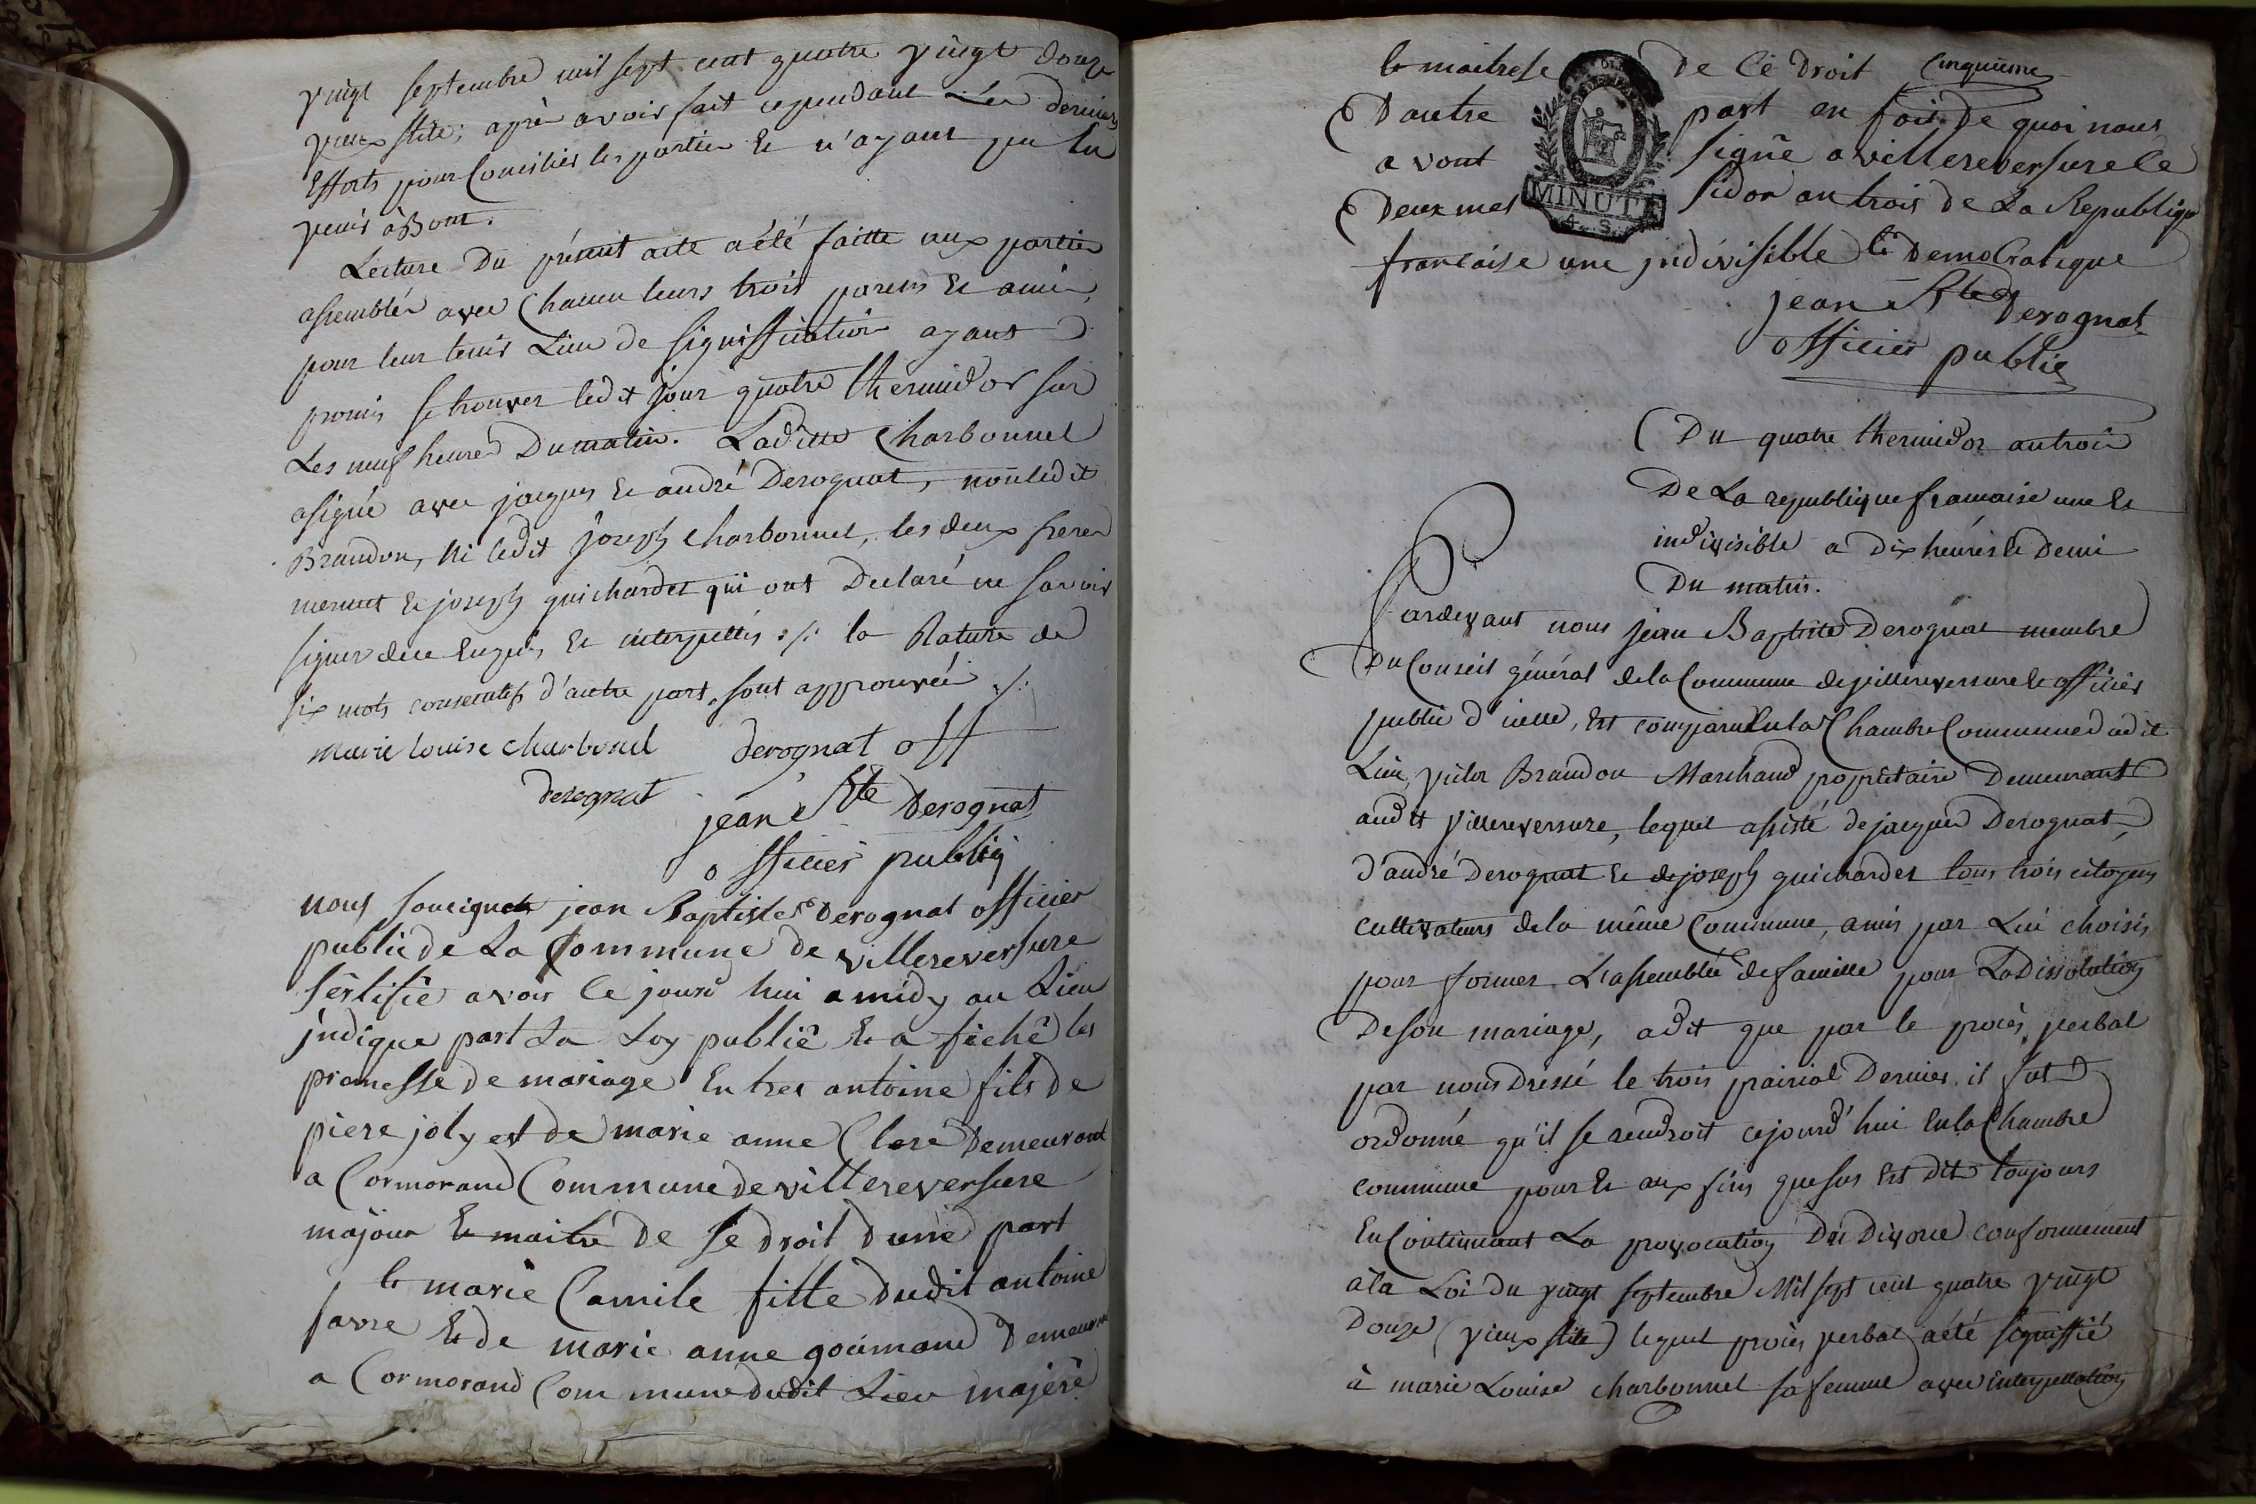 vingt septembre mil sept cent quatre vingt douze
vieux stile; après avoir fait cependant les derniers
Efforts pour Concilier les parties Et n'ayant pu En
venir à Bout.
Lecture Du présent acte a été faitte aux parties
assemblés avec Chacun leurs trois parens Et amis,
pour leur tenir Lieu de Signiffication ayant
promis se trouver ledit Jour quatre thermidor sur
Les neuf heures Du matin. Laditte Charbonnel
a signé avec jacques Et andré Derognat, non ledit
Brandon, Ni ledit Joseph Charbonnel, les deux freres
mermet Et joseph guichardet qui ont Declaré ne savoir
signer de ce Enquis, Et interpellés ./. la Rature de
six mots consecutifs d'autre part, sont approuvés ./.
marie louise charbonel derognat off
derognat
jean Bte Derognat
officier public
nous sousignets jean Baptiste Derognat officier
public de La Commune de villereversure
sèrtifiè avoir Ce jourd hui a midy au Lieu
jndique part La Loy publiê Et a fichê les
promesse de mariage Entres antoine fils de
piere joly et de marie anne Clere Demeurant
a Cormorand Commune de villereversure
majeur Et maitre de se droit d'une part
Et marie Camile fille dudit antoine
favre Et de marie anne goumand Demeurant
a Cormorand Commune dudit Lieu majere
Et maitrese de Cê droit Cinquieme
D autre part en fois de quoi nous
avont signê a villereversure le
Deux mes sidor an trois de La Republique
francaise une jndivisible Et Democratique
jean Bte Derognat
officier public
MINUT
4. S.
Du quatre thermidor an trois
De La republique francaise une Et
indivisible a Dix heures Et Demi
Du matin.
Pardevant nous Jean Baptiste Derognat membre
Du Conseil général de la Commune de villereversure Et officier
public d'icelle, Est comparu En la Chambre Commune dudit
Lieu, victor Brandon Marchand propriétaire Demeurant
audit villereversure, lequel assisté de jacques Derognat,
d'andré Derognat Et de joseph guichardet tous trois citoyens
cultivateurs de la même Commune, amis par Lui choisis,
pour former L'assemblée de famille pour La Dissolution
De son mariage, a dit que par le procès verbal
par nous Dressé le trois prairial Dernier il fut
ordonné qu'il se rendroit cejourd'hui En la Chambre
commune pour Et aux fins que sus Est Dit toujours
En Continuant La provocation Du Divorce conformement
à la Loi du vingt septembre Mil sept cent quatre vingt
Douze (vieux stile) lequel procès verbal a été signiffié
à marie Louise charbonnel sa femme avec interpellation